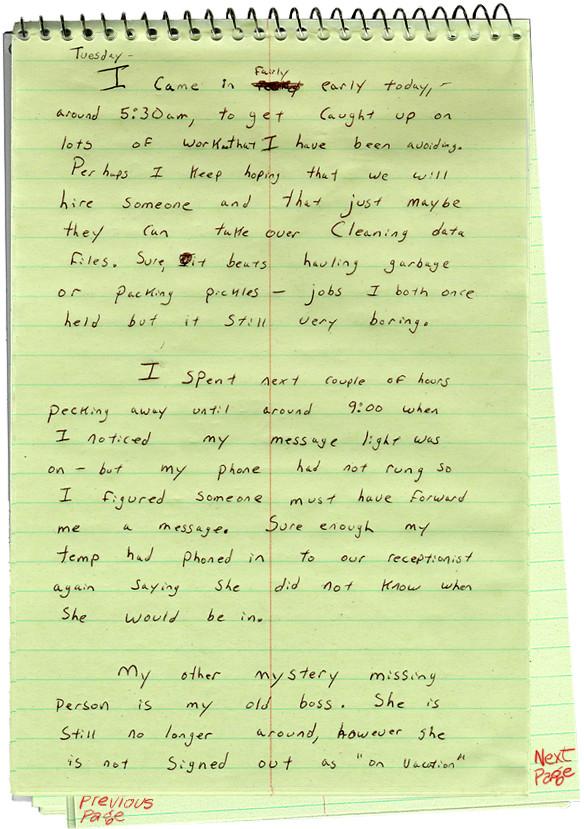 Tuesday-
I came in Fairly early today,-
around 5:30am, to get caught up on
lots of work that I have been avoiding.
Perhaps I keep hoping that we will
hire someone and that just maybe
they can take over cleaning data
files. Sure, it beats hauling garbage
or packing pickles - jobs I both once
held but it still very boring.
I spent next couple of hours
pecking away until around 9:00 when
I noticed my message light was
on - but my phone had not rung so
I figured someone must have forward
me a message. Sure enough my
temp had phoned in to our receptionist
again saying she did not know when
she would be in.
My other mystery missing
person is my old boss. She is
still no longer around, however she
is not signed out as "on vacation"
Next
Page
Previous
Page